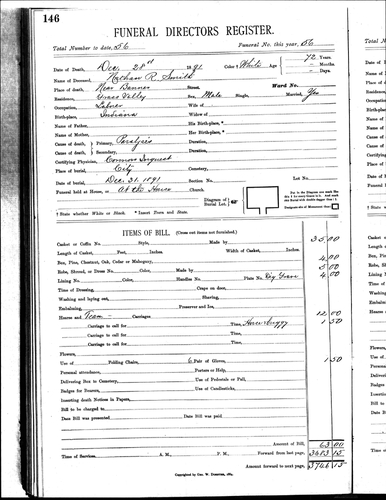 146
FUNERAL DIRECTORS REGISTER.
Total Number to date, 56 Funeral No. this year, 56
Date of Death, Dec. 28th 1891 Color † White Age 72 Years
– Months
– Days.
Name of Deceased, Nathan R. Smith
Place of Death, Near Banner Street, Ward No.
Residence, Grass Valley Sex, Male Single, Married, Yes
Occupation, Laborer Wife of
Birth-place, Indiana Widow of
Name of Father, His Birth-place, *
Name of Mother, Her Birth-place, *
Cause of death, Primary, Paralysis Duration,
Cause of death, Secondary, Duration,
Certifying Physician, Coroner Inquest
Place of burial, City Cemetery,
Date of burial, Dec. 31. 1891 Section No. Lot No.
Funeral held at House, At the House Church.
Diagram of Burial Lot.
† State whether White or Black. * Insert Town and State.
ITEMS OF BILL. (Cross out items not furnished.)
Casket or Coffin No. Style, Made by 35 00
Length of Casket, Feet, Inches. Width of Casket, Inches.
Box, Pine, Chestnut, Oak, Cedar or Mahogany, 4 00
Robe, Shroud, or Dress No. Color, Made by 5 00
Lining No. Color, Handles No. Plate No. 4 00
Time of Dressing, Crape on door,
Washing and laying out, Shaving,
Embalming, Preserver and Ice,
Hearse and Team – Carriages 12 00
Carriages to call for Time, 1 50
Carriages to call for Time,
Carriages to call for Time,
Flowers,
Use of Folding Chairs, 6 Pair of Gloves, 1 50
Personal attendance, Porters or Help,
Delivering Box to Cemetery, Use of Pedestals or Pall,
Badges for Bearers, Use of Candlesticks,
Inserting death Notices in Papers,
Bill to be charged to
Date Bill was presented Date Bill was paid
Amount of Bill, 63 00
Time of Services, A. M., P. M. Forward from last page, 3683 15
Amount forward to next page, 3746 15